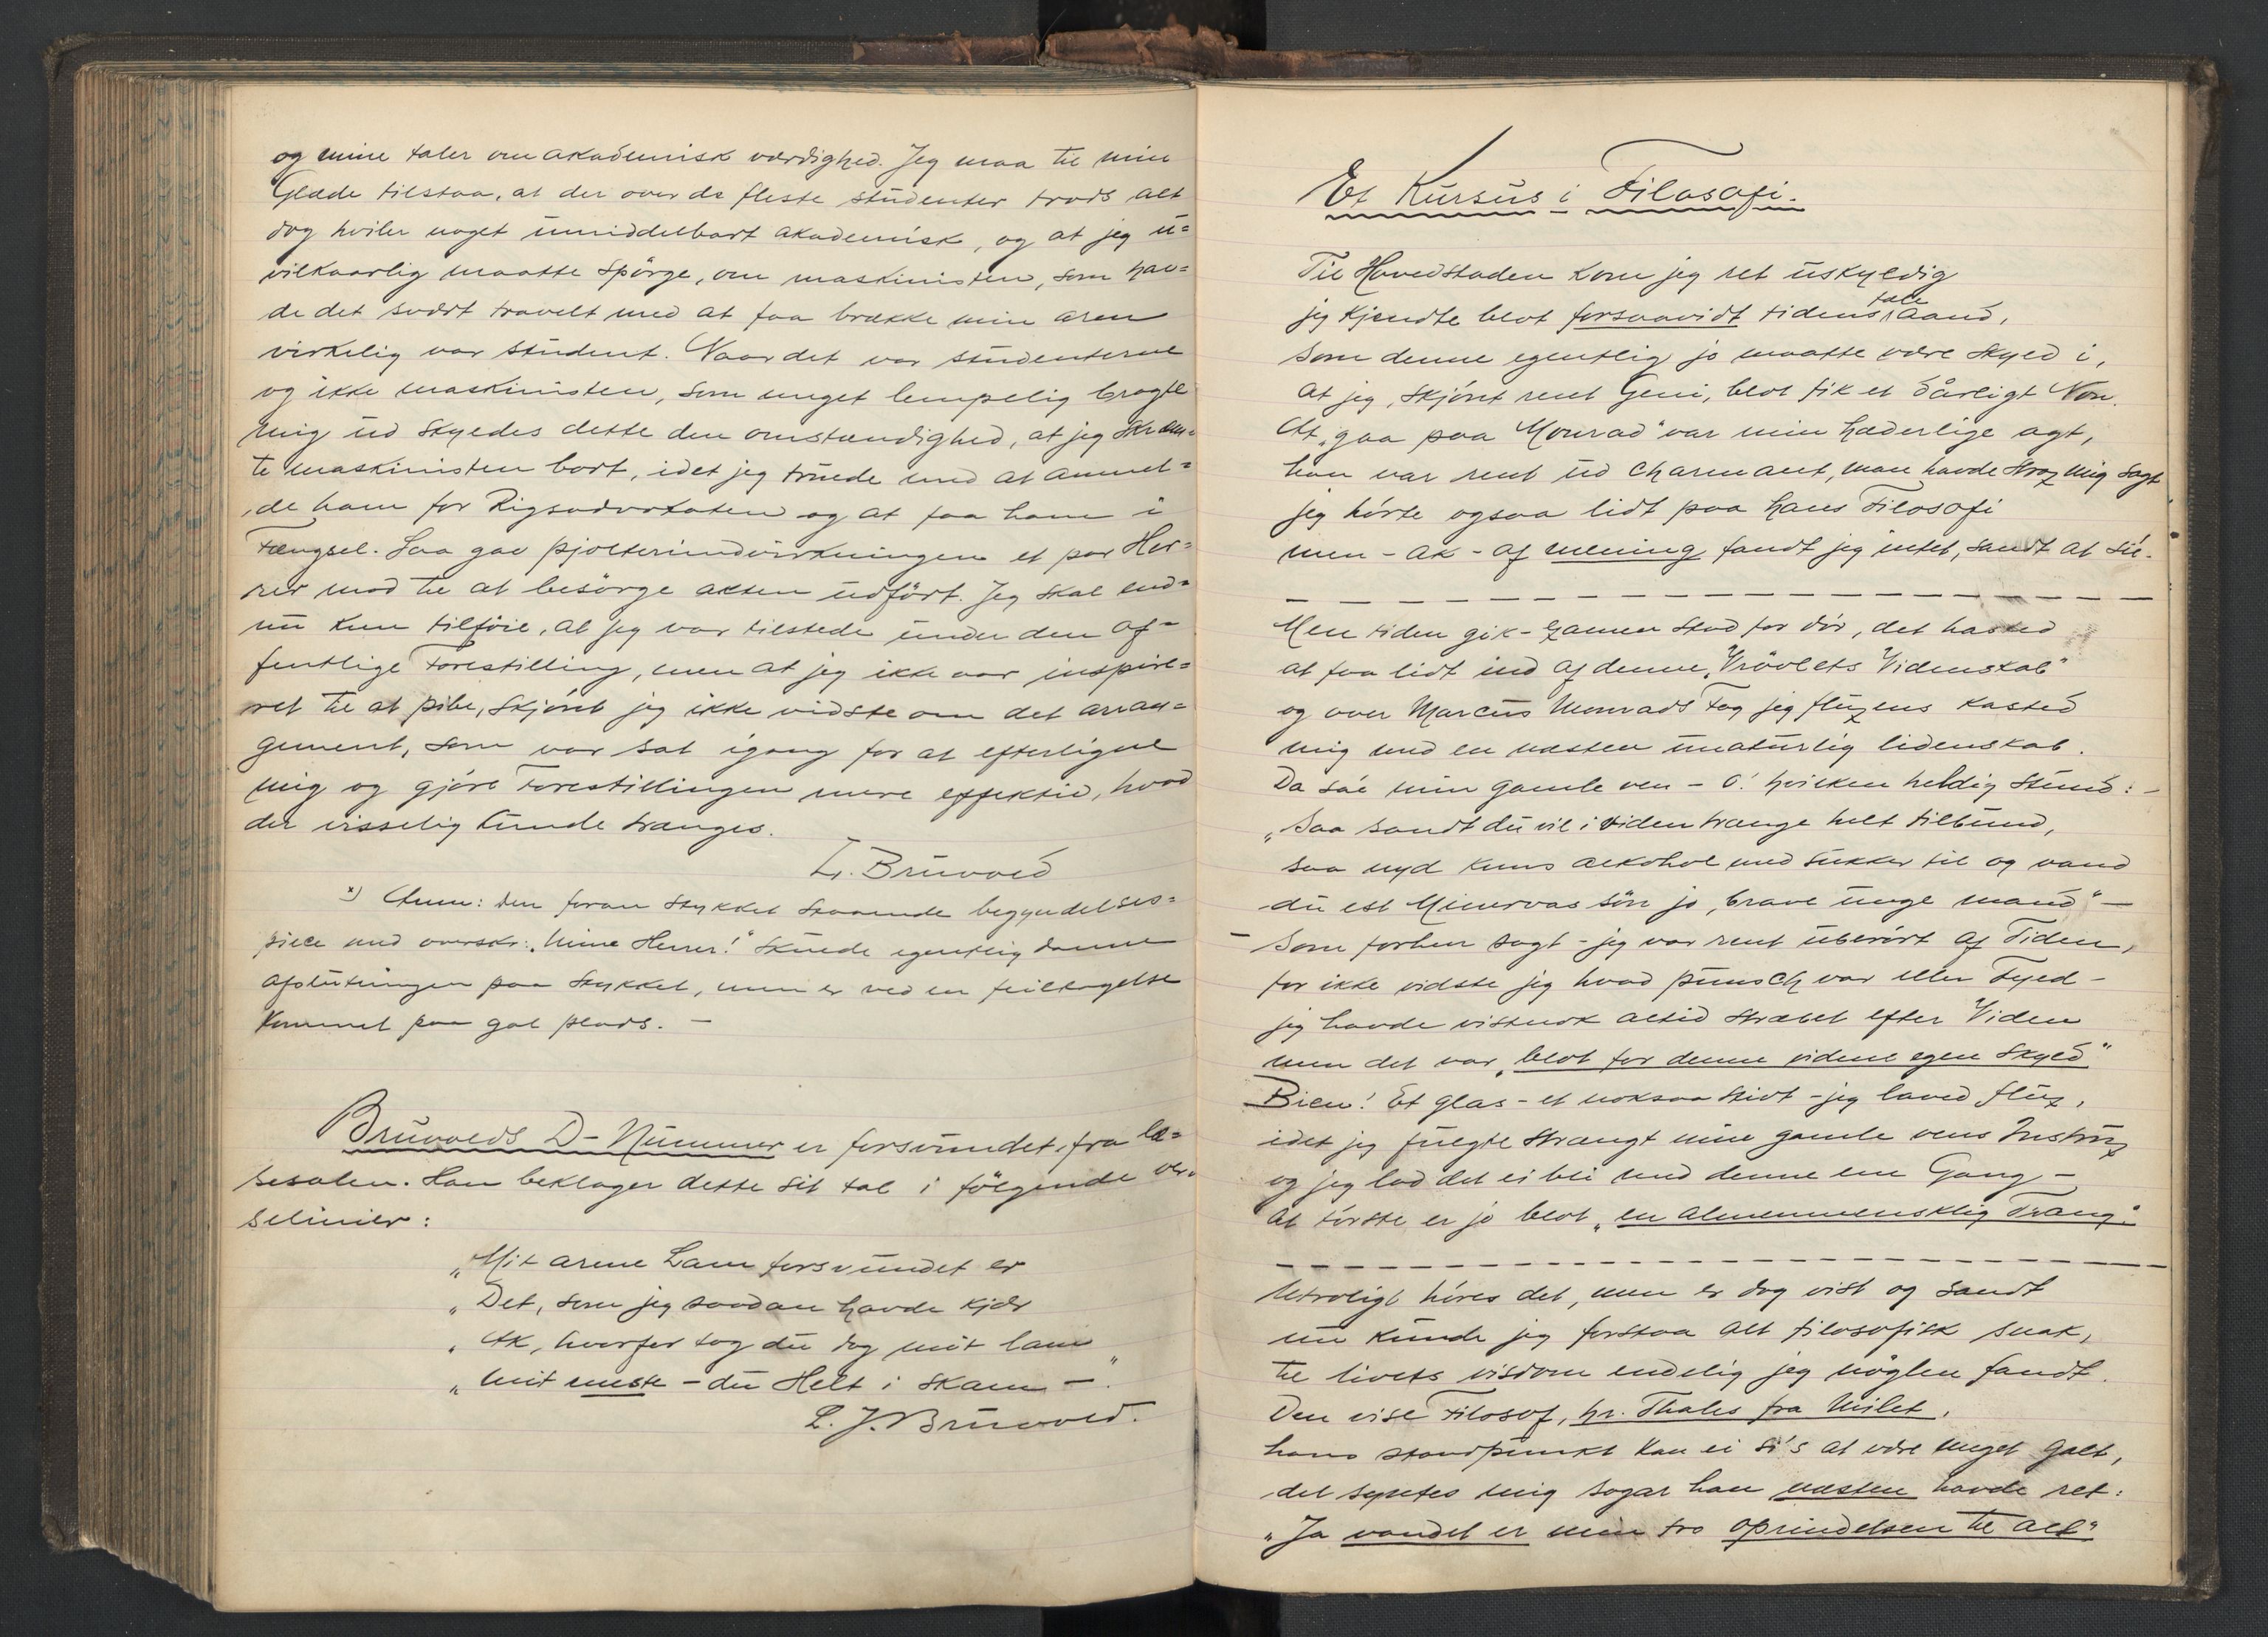 og mine taler om akademisk værdighed. Jeg maa til min
Glæde tilstaa, at der over de fleste studenter trods alt
dog hviler noget umiddelbart akademisk, og at jeg u=
vilkaarlig maatte spörge, om maskinisten, som hav=
de det svært travelt med at faa brække min arm
virkelig var student. Naar det var studenterne
og ikke maskinisten, som meget lempelig bragte
mig ud skyldes dette den omstændighed, at jeg skræm=
te maskinisten bort, idet jeg truede med at anmel=
de ham for Rigsadvokaten og at faa ham i
Fængsel. Saa gav pjolterindvirkningen et par Her=
rer mod til at besörge akten udfört. Jeg skal end=
nu kun tilföie, at jeg var tilstede under den of=
fentlige Forestilling, men at jeg ikke var inspire=
ret til at pibe, skjönt jeg ikke vidste om det arran=
gement, som var sat igang for at efterligne
mig og gjöre Forestillingen mere effektiv, hvad
der visselig kunde trænges.
L. Bruvold
x) Anm: Den foran Stykket staaende begyndelses=
piece med overskr: „Mine Herrer!" skulde egentlig danne
afslutningen paa Stykket, men er ved en feiltagelse
kommet paa gal plads. —
Bruvolds D-Nummer er forsvundet fra læ=
sesalen. Han beklager dette sit tab i fölgende ver=
selinier:
„Mit arme Lam forsvundet er
„Det, som jeg saadan havde kjær
„Ak, hvorfor tog du dog mit lam
„Mit eneste – du Helt i Skam —"
L. J. Bruvold.
Et Kursus i Filosofi.
Til Hovedstaden kom jeg ret uskyldig
jeg kjendte blot forsaavidt tidens tale aand,
som denne egentlig jo maatte være skyld i,
at jeg, skjönt rent Geni, blot fik et dårligt Non.
At „gaa paa Monrad" var min hæderlige agt,
han var rent ud charmant, man havde strax mig sagt
jeg hörte ogsaa lidt paa hans Filosofi
men – ak – af mening fandt jeg intet, sandt at si'.
Men tiden gik – Examen stod for dör, det hasted
at faa lidt ind af denne „Vrövlets Videnskab"
og over Marcus Monrads Fag jeg fluxens kasted
mig med en næsten unaturlig lidenskab.
Da sa'e min gamle ven – O! hvilken heldig Stund: –
„Saa sandt du vil i viden trænge helt tilbund,
saa nyd kuns alkohol med sukker til og vand
du est Minervas sön jo, brave unge mand" —
– Som forhen sagt – jeg var rent uberört af Tiden,
for ikke vidste jeg hvad punsch var eller Fyld –
jeg havde vistnok altid stræbet efter Viden
men det var „blot for denne videns egen Skyld"
Bien! Et glas – et noksaa stivt – jeg laved flux,
idet jeg fulgte strængt min gamle vens Instrux
og jeg lod det ei bli med denne ene Gang –
at törste er jo blot „en almenmensklig Trang".
Utroligt höres det, men er dog vist og sandt
nu kunde jeg forstaa alt filosofisk snak,
til livets visdom endelig jeg nöglen fandt.
Den vise Filosof, hr. Thales fra Milet,
hans standpunkt kan ei si's at være meget galt,
det syntes mig sogar han næsten havde ret:
„Ja vandet er min tro oprindelsen til alt"